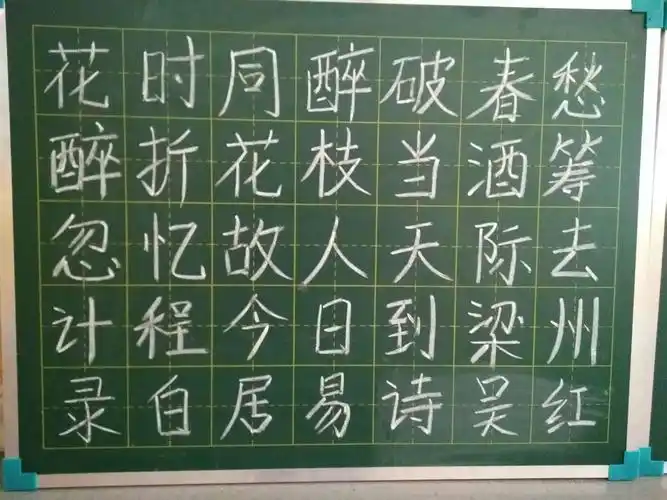 花时同醉破春愁
醉折花枝当酒筹
忽忆故人天际去
计程今日到梁州
录白居易诗吴红